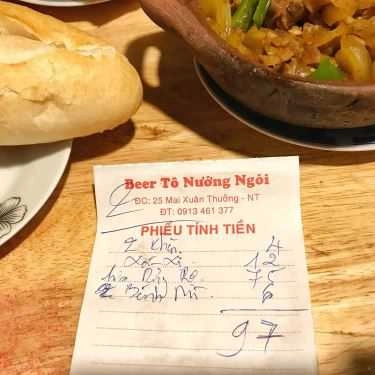 Beer Tô Nướng Ngói
ĐC: 25 Mai Xuân Thưởng - NT
ĐT: 0913 461 377
PHIẾU TÍNH TIỀN
2
2 Khăn 4
Xá Xị 12
bò 75
2 Bánh Mì 6
97